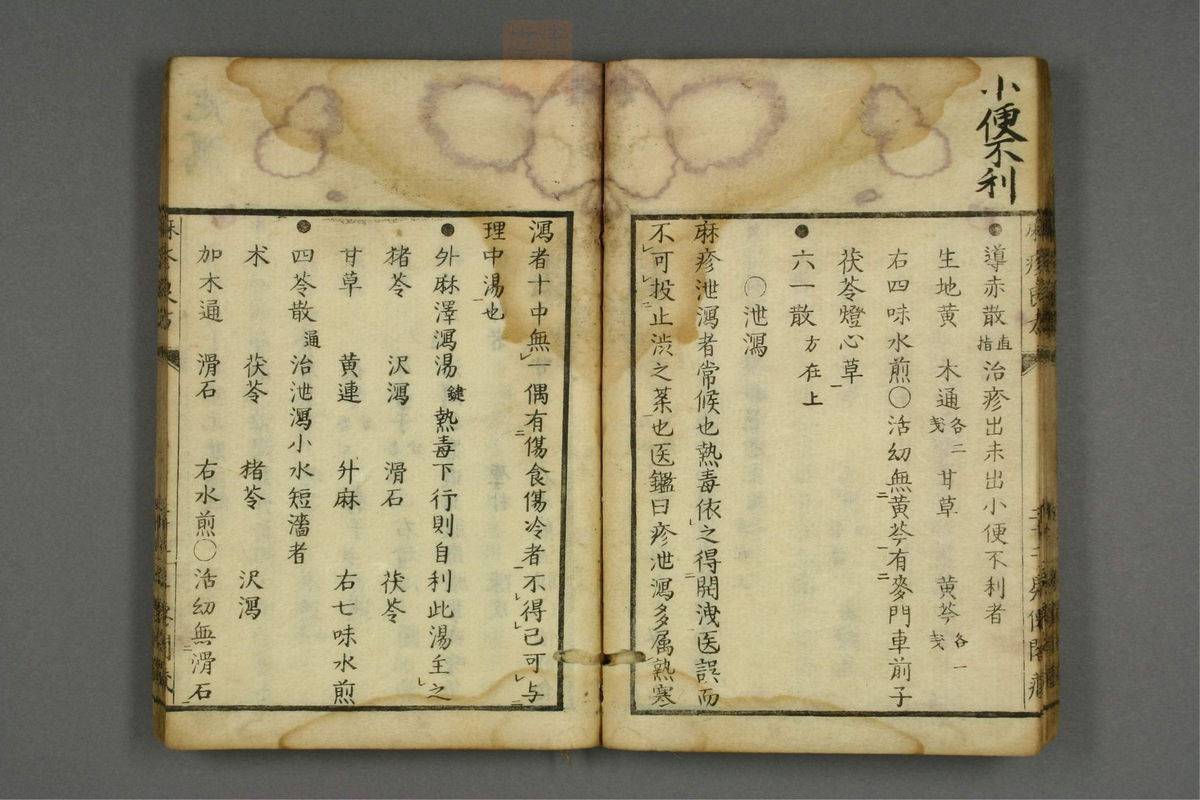 小便不利
●導赤散直指治疹出未出小便不利者
生地黄 木通各二戔 甘草 黄芩各一戔
右四味水煎〇活幼無二黄芩一有二麦門車前子
茯苓燈心草一
●六一散方在上
〇泄瀉
麻疹泄瀉者常候也熱毒依レ之得二開洩一医誤而
不レ可レ投二止渋之薬一也医鑑曰疹泄瀉多属熱寒
瀉者十中無レ一偶有二傷食傷冷者一不レ得レ已可レ与二
理中湯一也
●外麻澤瀉湯鍵熱毒下行則自利此湯主レ之
猪苓 沢瀉 滑石 茯苓
甘草 黄連 升麻 右七味水煎
●四苓散通治泄瀉小水短濇者
朮 茯苓 猪苓 沢瀉
加木通 滑石 右水煎〇活幼無二滑石一